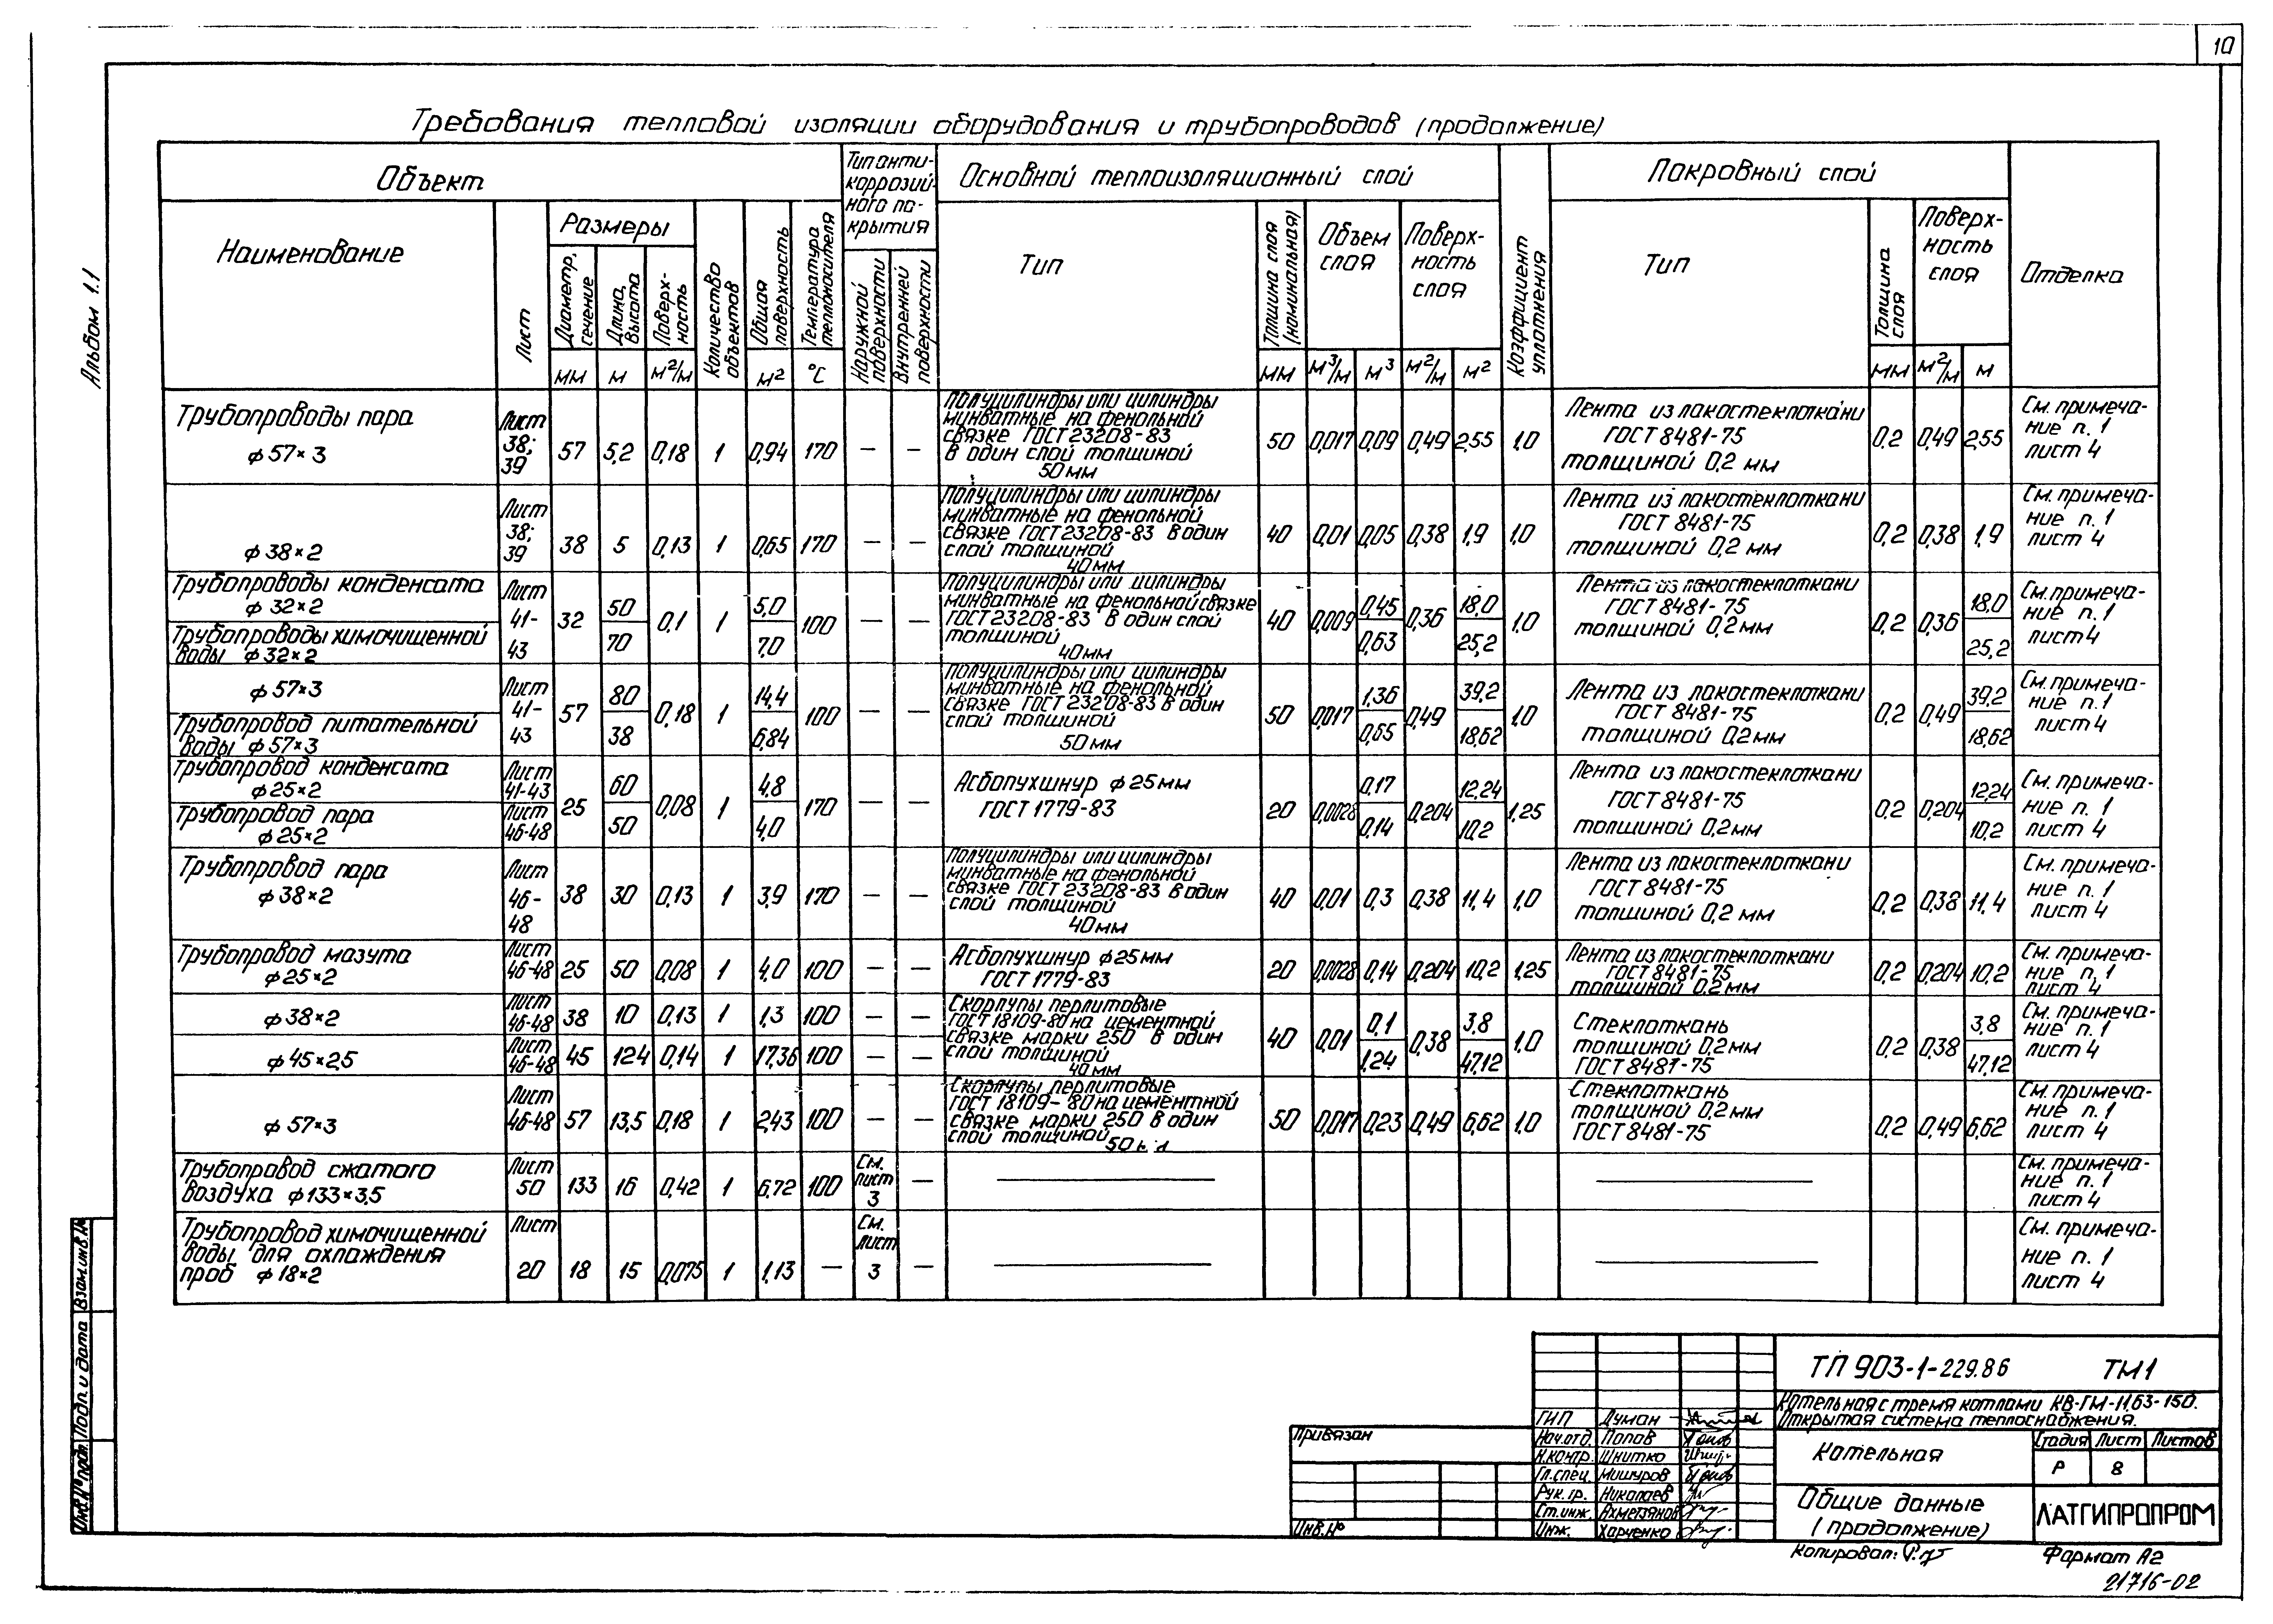 10
Альбом 1.1
Требования тепловой изоляции оборудования и трубопроводов (продолжение)
Объект
Тип анти-
коррозий-
ного по-
крытия
Основной теплоизоляционный слой
Коэффициент уплотнения
Покровный слой
Отделка
Наименование
Лист
Размеры
Диаметр, сечение
Длина, высота
Поверх-
ность
Количество объектов
Общая поверхность
Температура теплоносителя
Наружной поверхности
Внутренней поверхности
Тип
Толщина слоя (номинальная)
Объем слоя
Поверх-
ность слоя
Тип
Толщина слоя
Поверх-
ность слоя
мм м м²/м м² °С мм м³/м м³ м²/м м² мм м²/м м
Трубопроводы пара
ф57×3
Лист 38; 39
57 5,2 0,18 1 0,94 170 — —
Полуцилиндры или цилиндры
минватные на фенольной
связке ГОСТ 23208-83
в один слой толщиной
50мм
50 0,017 0,09 0,49 2,55 1,0
Лента из лакостеклоткани
ГОСТ 8481-75
толщиной 0,2 мм
0,2 0,49 2,55
См. примеча-
ние п. 1
лист 4
ф38×2
Лист 38; 39
38 5 0,13 1 0,65 170 — —
Полуцилиндры или цилиндры
минватные на фенольной
связке ГОСТ 23208-83 в один
слой толщиной
40мм
40 0,01 0,05 0,38 1,9 1,0
Лента из лакостеклоткани
ГОСТ 8481-75
толщиной 0,2 мм
0,2 0,38 1,9
См. примеча-
ние п. 1
лист 4
Трубопроводы конденсата
ф32×2
Трубопроводы химочищенной
воды ф32×2
Лист 41-43
32 50 70 0,1 1 5,0 7,0 100 — —
Полуцилиндры или цилиндры
минватные на фенольной связке
ГОСТ 23208-83 в один слой
толщиной
40мм
40 0,009 0,45 0,63 0,36 18,0 25,2 1,0
Лента из лакостеклоткани
ГОСТ 8481-75
толщиной 0,2мм
0,2 0,36 18,0 25,2
См. примеча-
ние п. 1
лист 4
ф57×3
Трубопровод питательной
воды ф57×3
Лист 41-43
57 80 38 0,18 1 14,4 6,84 100 — —
Полуцилиндры или цилиндры
минватные на фенольной
связке ГОСТ 23208-83 в один
слой толщиной
50мм
50 0,017 1,36 0,65 0,49 39,2 18,62 1,0
Лента из лакостеклоткани
ГОСТ 8481-75
толщиной 0,2мм
0,2 0,49 39,2 18,62
См. примеча-
ние п.1
лист 4
Трубопровод конденсата
ф25×2
Трубопровод пара
ф25×2
Лист 41-43
Лист 46-48
25 60 50 0,08 1 4,8 4,0 170 — —
Асбопухшнур ф25мм
ГОСТ 1779-83
20 0,0028 0,17 0,14 0,204 12,24 10,2 1,25
Лента из лакостеклоткани
ГОСТ 8481-75
толщиной 0,2мм
0,2 0,204 12,24 10,2
См. примеча-
ние п. 1
лист 4
Трубопровод пара
ф38×2
Лист 46-48
38 30 0,13 1 3,9 170 — —
Полуцилиндры или цилиндры
минватные на фенольной
связке ГОСТ 23208-83 в один
слой толщиной
40мм
40 0,01 0,3 0,38 11,4 1,0
Лента из лакостеклоткани
ГОСТ 8481-75
толщиной 0,2 мм
0,2 0,38 11,4
См. примеча-
ние п. 1
лист 4
Трубопровод мазута
ф25×2
Лист 46-48
25 50 0,08 1 4,0 100 — —
Асбопухшнур ф25мм
ГОСТ 1779-83
20 0,0028 0,14 0,204 10,2 1,25
Лента из лакостеклоткани
ГОСТ 8481-75
толщиной 0,2мм
0,2 0,204 10,2
См. примеча-
ние п. 1
лист 4
ф38×2
Лист 46-48
38 10 0,13 1 1,3 100 — —
ф45×2,5
Лист 46-48
45 124 0,14 1 17,36 100 — —
Скорлупы перлитовые
ГОСТ 18109-80 на цементной
связке марки 250 в один
слой толщиной
40мм
40 0,01 0,1 1,24 0,38 3,8 47,12 1,0
Стеклоткань
толщиной 0,2мм
ГОСТ 8481-75
0,2 0,38 3,8 47,12
См. примеча-
ние п. 1
лист 4
ф57×3
Лист 46-48
57 13,5 0,18 1 2,43 100 — —
Скорлупы перлитовые
ГОСТ 18109-80 на цементной
связке марки 250 в один
слой толщиной
50
50 0,017 0,23 0,49 6,62 1,0
Стеклоткань
толщиной 0,2 мм
ГОСТ 8481-75
0,2 0,49 6,62
См. примеча-
ние п. 1
лист 4
Трубопровод сжатого
воздуха ф133×3,5
Лист 50
133 16 0,42 1 6,72 100
См. лист 3 —
См. примеча-
ние п. 1
лист 4
Трубопровод химочищенной
воды для охлаждения
проб ф18×2
Лист 20
18 15 0,075 1 1,13 —
См. лист 3 —
См. примеча-
ние п. 1
лист 4
Взам.инв.№
Подп. и дата
Инв.№ подл.
Привязан
Инв.№
ГИП Думан
Нач.отд. Попов
Н.контр. Шнитко
Гл.спец. Мишуров
Рук.гр. Николаев
Ст.инж. Ахметзянов
Инж. Харченко
ТП 903-1-229.86 ТМ1
Котельная с тремя котлами КВ-ГМ-11,63-150.
Открытая система теплоснабжения.
Котельная
Стадия Лист Листов
Р 8
Общие данные
(продолжение)
ЛАТГИПРОПРОМ
Копировал:
Формат А2
21716-02